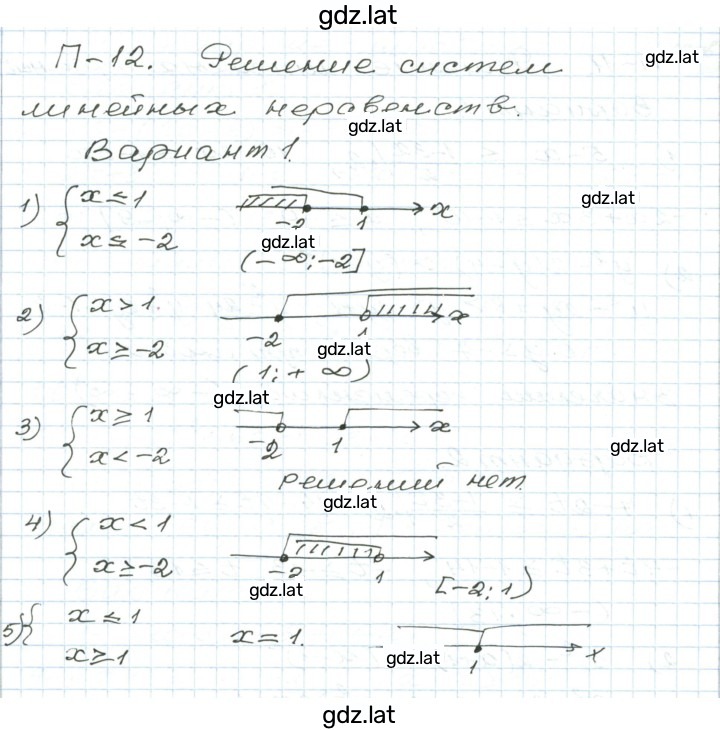 gdz.lat
П-12. Решение систем
gdz.lat
линейных неравенств.
gdz.lat
Вариант 1.
1) { x ≤ 1
x ≤ -2
-2 1 x
gdz.lat
gdz.lat
(-∞; -2]
2) { x > 1.
x ≥ -2
-2 1 x
gdz.lat
(1; + ∞)
gdz.lat
3) { x ≥ 1
x < -2
-2 1 x
gdz.lat
решений нет.
gdz.lat
4) { x < 1
x ≥ -2
-2 1
[-2; 1)
gdz.lat
5) { x ≤ 1
x ≥ 1
x = 1.
1 x
gdz.lat
gdz.lat